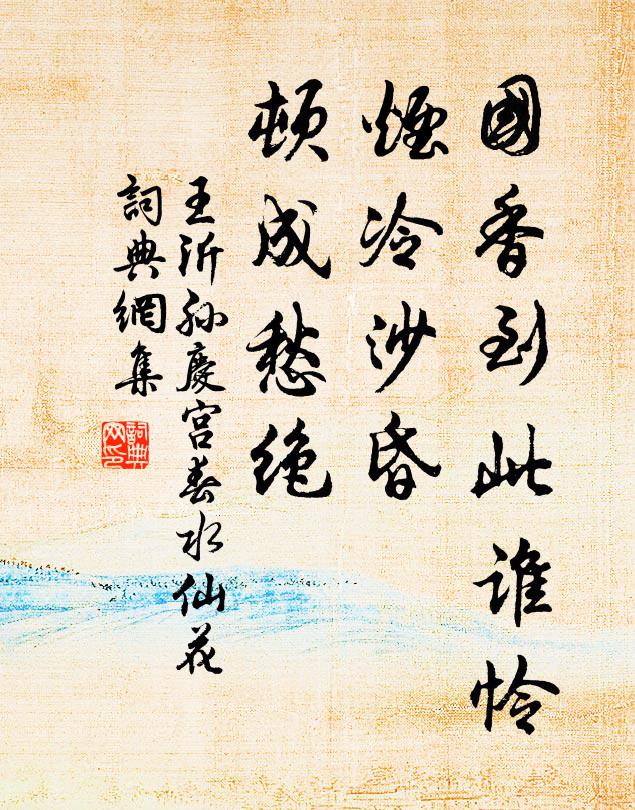 國香到此誰怜
煙冷沙昏
頓成愁絶
王沂孫慶宮春水仙花
詞典網集
詞典网印